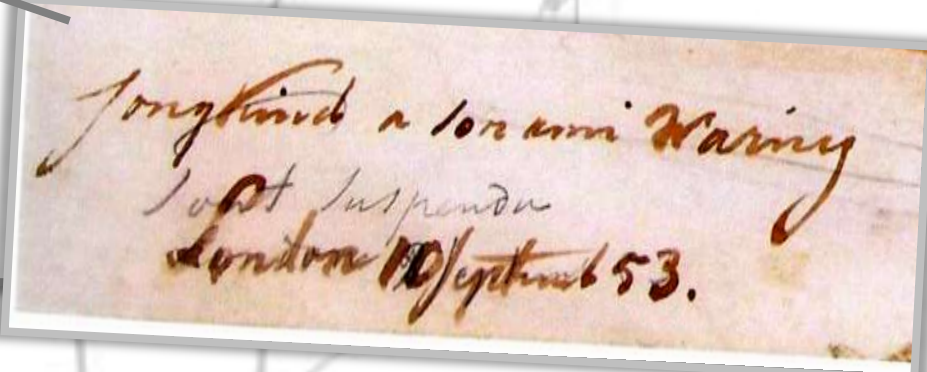 Jongkind a son ami Waring
Sont suspendu
London 10 Septemb 53.